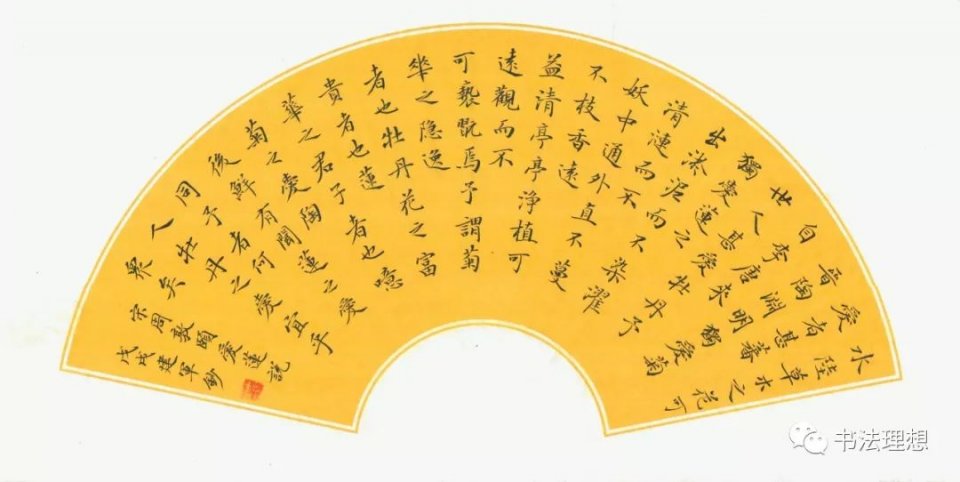 水陸草木之花可
愛者甚蕃
晉陶淵明獨愛菊
自李唐來
世人甚愛牡丹予
獨愛蓮之
出淤泥而不染濯
清漣而不
妖中通外直不蔓
不枝香遠
益清亭亭淨植可
遠觀而不
可褻翫焉予謂菊
華之隐逸
者也牡丹花之富
貴者也蓮
華之君子者也噫
菊之愛陶
後鮮有聞蓮之愛
同予者何
人牡丹之愛宜乎
眾矣
宋周敦頤愛蓮説
戊戌建軍鈔
书法理想